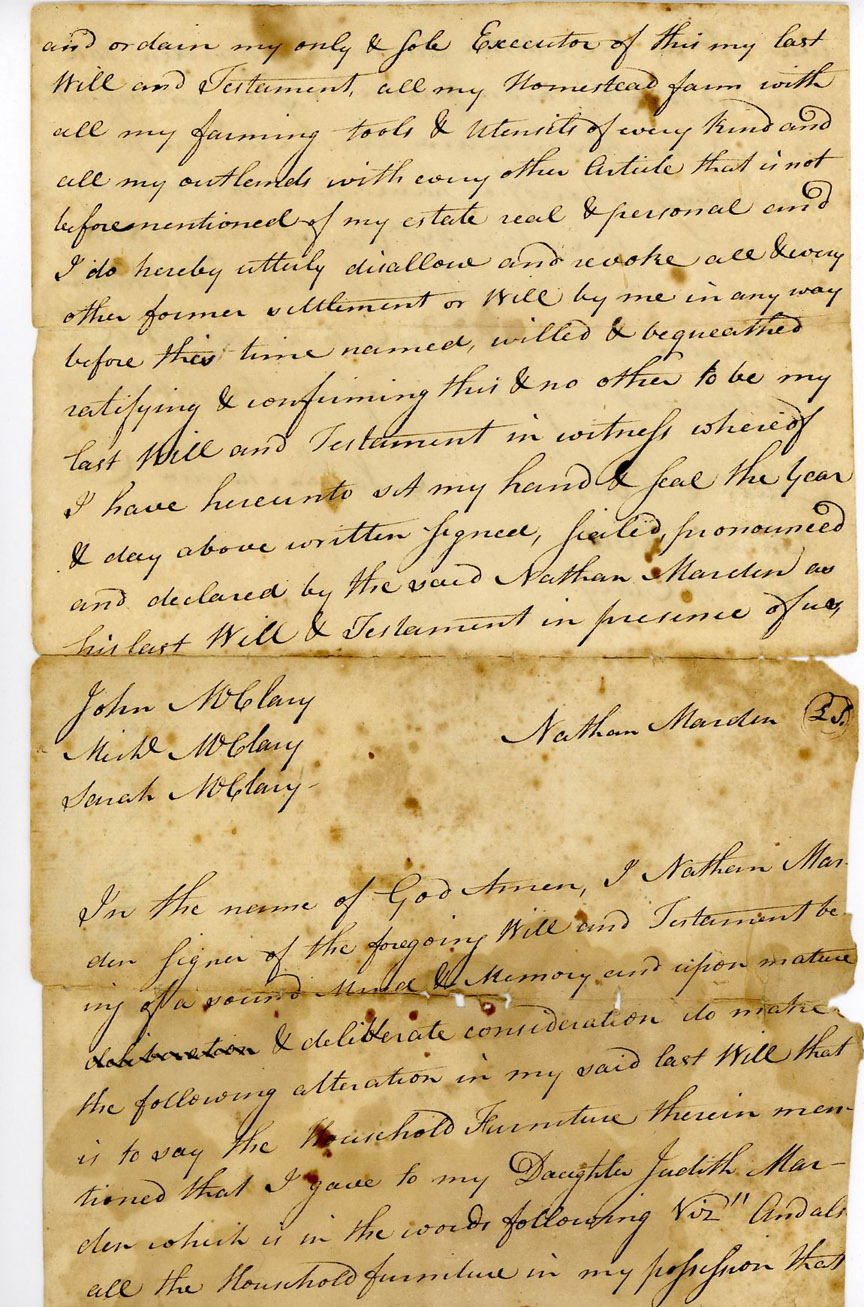 and ordain my only & sole Executor of this my last
Will and Testament, all my Homestead farm with
all my farming tools & Utensils of every kind and
all my outlands with every other Article that is not
beforementioned of my estate real & personal and
I do hereby utterly disallow and revoke all & every
other former settlement or Will by me in any way
before this time named, willed & bequeathed
ratifying & confirming this & no other to be my
last Will and Testament in witness whereof
I have hereunto set my hand & seal the Year
& day above written signed, sealed, pronounced
and declared by the said Nathan Marden as
his last Will & Testament in presence of us,
John McClary
Nathan Marden L.S.
Michl McClary
Sarah McClary
In the name of God Amen, I Nathan Mar-
den signer of the foregoing Will and Testament be-
ing of a sound Mind & Memory and upon mature
deliberation & deliberate consideration do make
the following alteration in my said last Will that
is to say the Household Furniture therein men-
tioned that I gave to my Daughter Judith Mar-
den which is in the words following Viz" And als
all the Household furniture in my possession that